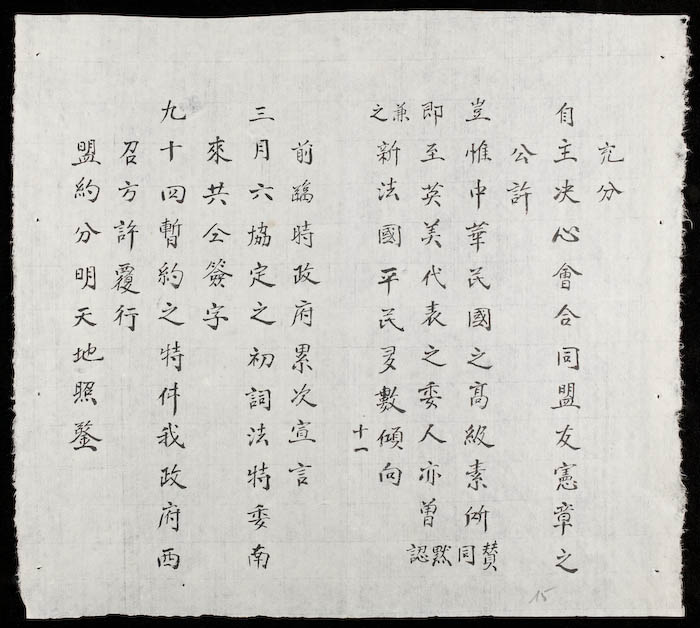 充分
自主决心會合同盟友憲章之
公許
豈惟中華民國之高級素所贊同
即至英美代表之委人亦曾默認
兼之新法國平民多數傾向
十一
前臨時政府累次宣言
三月六協定之初詞法特委南
來共仝簽字
九十四暫約之特件我政府西
召方許覆行
盟約分明天地照鑒
15